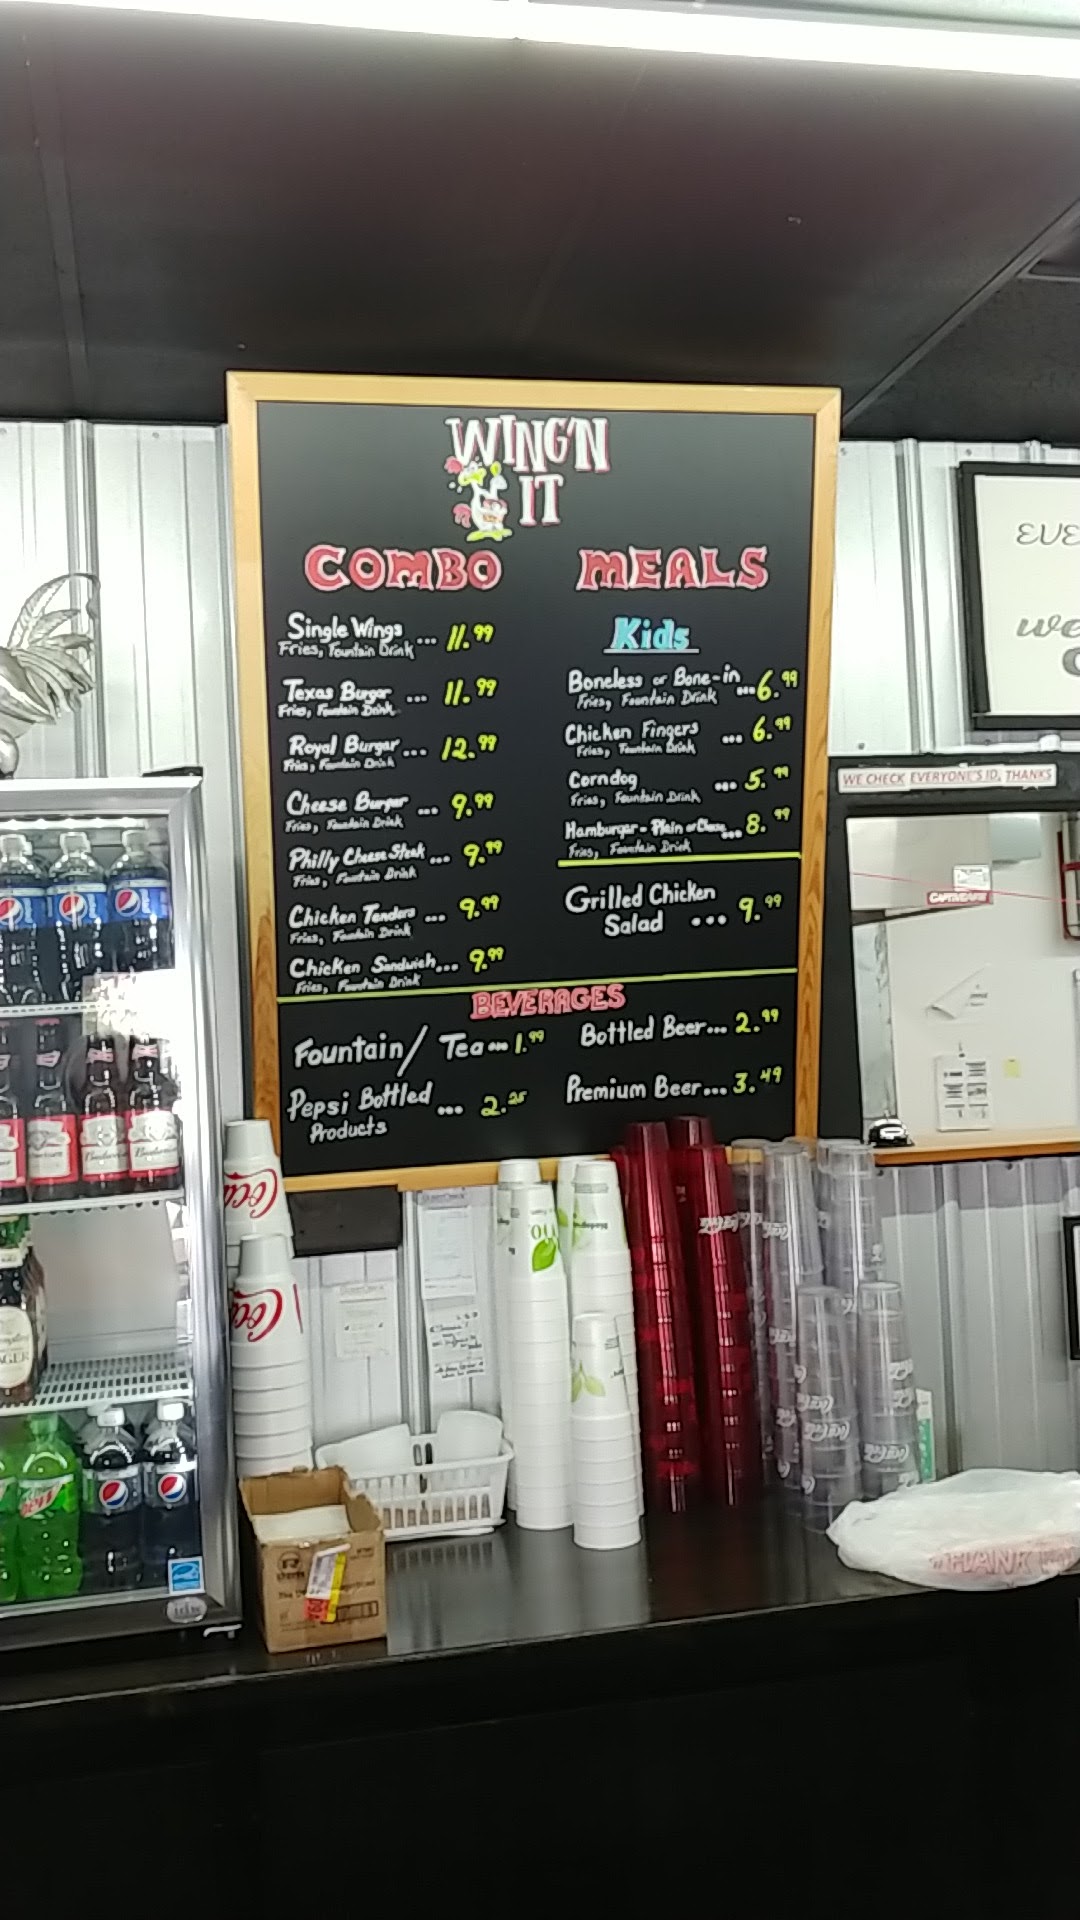 WING'N
IT
COMBO MEALS
Single Wings ... 11.99
Fries, Fountain Drink
Texas Burger ... 11.99
Fries, Fountain Drink
Royal Burger ... 12.99
Fries, Fountain Drink
Cheese Burger ... 9.99
Fries, Fountain Drink
Philly Cheese Steak ... 9.99
Fries, Fountain Drink
Chicken Tenders ... 9.99
Fries, Fountain Drink
Chicken Sandwich... 9.99
Fries, Fountain Drink
Kids
Boneless or Bone-in ...6.99
Fries, Fountain Drink
Chicken Fingers ... 6.99
Fries, Fountain Drink
Corndog ... 5.99
Fries, Fountain Drink
Hamburger - Plain or Cheese... 8.99
Fries, Fountain Drink
Grilled Chicken
Salad ... 9.99
BEVERAGES
Fountain/ Tea ... 1.99
Pepsi Bottled ... 2.25
Products
Bottled Beer... 2.99
Premium Beer... 3.49
EVE
we
WE CHECK EVERYONE'S ID, THANKS
pepsi
Budweiser
Budweiser
LAGER
Coca
Coca
Coca-Cola
Coca-Cola
Coca-Cola
THANK